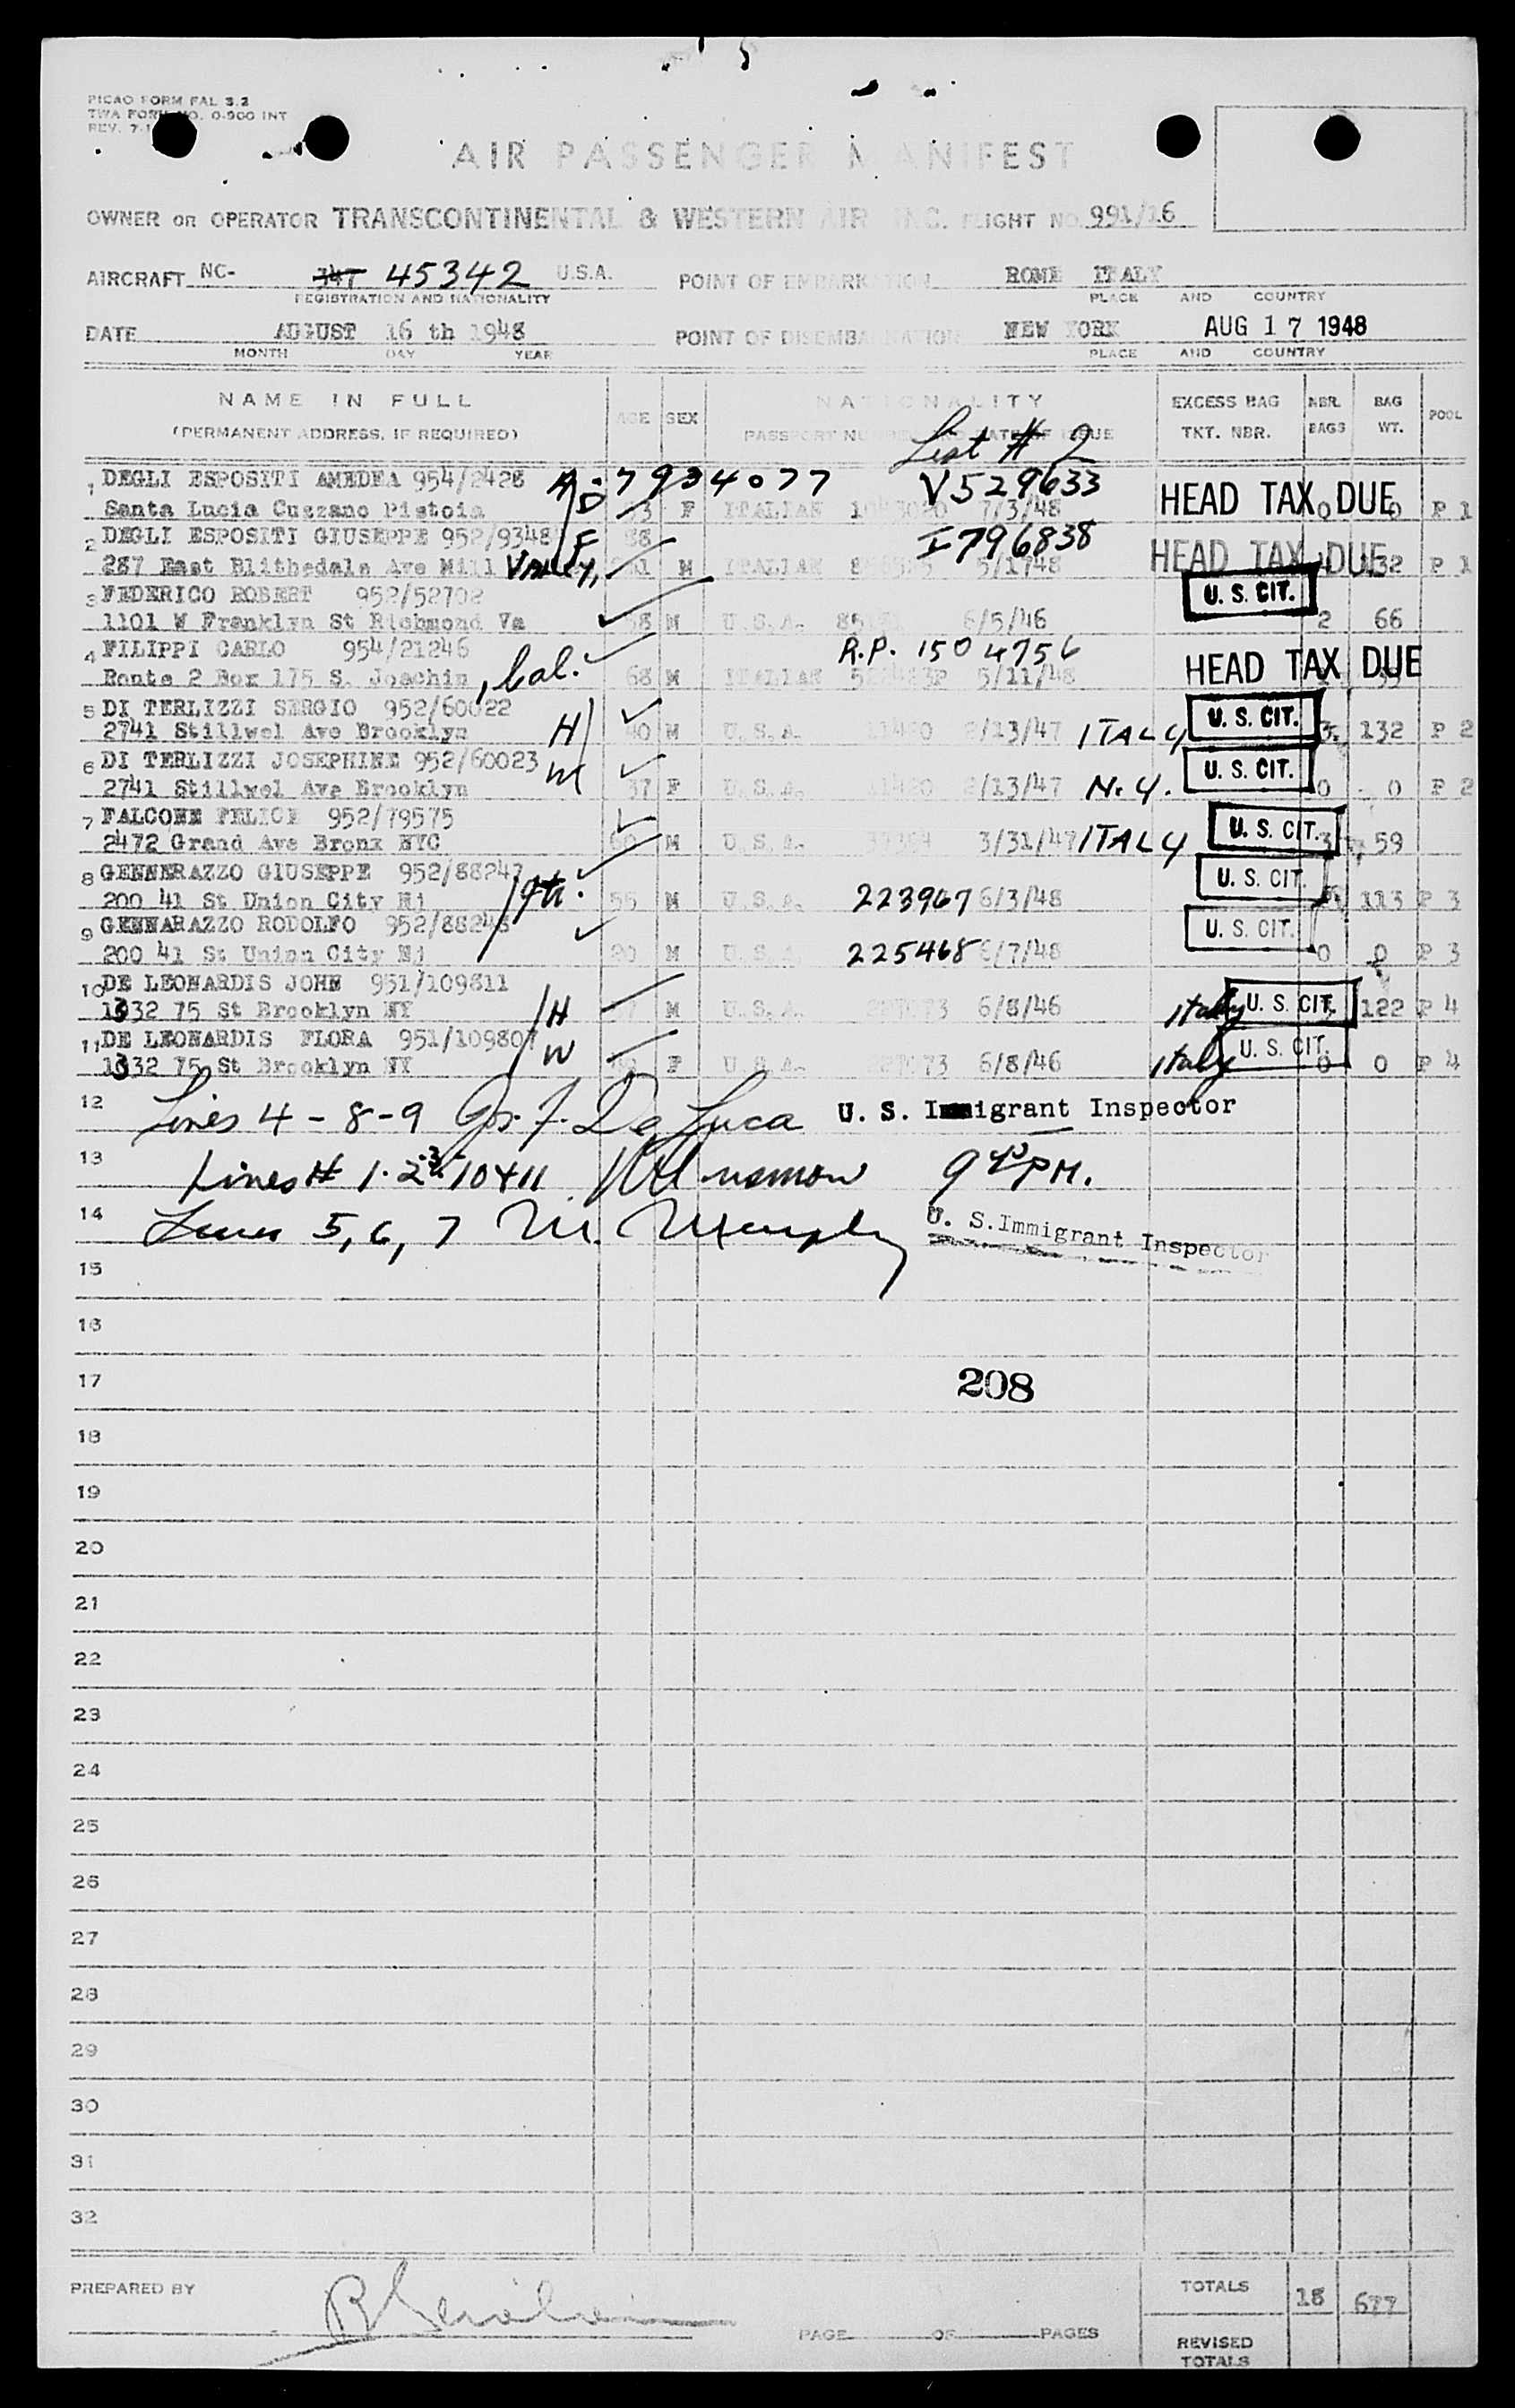 PICAO FORM FAL 3.2
TWA FORM NO. 0-900 INT
REV. 7-1
AIR PASSENGER MANIFEST
OWNER OR OPERATOR TRANSCONTINENTAL & WESTERN AIR INC. FLIGHT NO. 991/16
AIRCRAFT NC- 45342 U.S.A. POINT OF EMBARKATION ROME ITALY
REGISTRATION AND NATIONALITY PLACE AND COUNTRY
DATE AUGUST 16 th 1948 POINT OF DISEMBARKATION NEW YORK AUG 17 1948
MONTH DAY YEAR PLACE AND COUNTRY
NAME IN FULL AGE SEX NATIONALITY EXCESS BAG NBR. BAG POOL
(PERMANENT ADDRESS, IF REQUIRED) PASSPORT NUMBER AND DATE OF ISSUE TKT. NBR. BAGS WT.
List # 2
1 DEGLI ESPOSITI AMEDEA 954/2428 A-7934077 V529633
Santa Lucia Cuzzano Pistoia D F ITALIAN 7/3/48 HEAD TAX DUE 0 0 P 1
2 DEGLI ESPOSITI GIUSEPPE 952/9348 F 88 I796838
287 East Blithedale Ave Mill Valley, M ITALIAN 5/1748 HEAD TAX DUE 132 P 1
3 FEDERICO ROBERT 952/52702 U. S. CIT.
1101 W Franklyn St Richmond Va M U.S.A. 6/5/46 2 66
4 FILIPPI CARLO 954/21246 R.P. 1504756
Route 2 Box 175 S. Joachin, Cal. 68 M ITALIAN 5/11/48 HEAD TAX DUE
5 DI TERLIZZI SERGIO 952/60022
2741 Stillwel Ave Brooklyn H 40 M U.S.A. 2/13/47 ITALY U. S. CIT. 132 P 2
6 DI TERLIZZI JOSEPHINE 952/60023
2741 Stillwel Ave Brooklyn W 37 F U.S.A. 2/13/47 N.Y. U. S. CIT. 0 0 P 2
7 FALCONE FELICE 952/79575
2472 Grand Ave Bronx NYC M U.S.A. 3/31/47 ITALY U. S. CIT. 3 59
8 GENNERAZZO GIUSEPPE 952/88247
200 41 St Union City Nj 55 M U.S.A. 223967 6/3/48 U. S. CIT. 113 P 3
9 GENNARAZZO RODOLFO 952/88248
200 41 St Union City Nj 20 M U.S.A. 225468 6/7/48 U. S. CIT. 0 0 P 3
10 DE LEONARDIS JOHN 951/109811
1332 75 St Brooklyn NY H M U.S.A. 6/8/46 Italy U. S. CIT. 122 P 4
11 DE LEONARDIS FLORA 951/109807
1332 75 St Brooklyn NY W F U.S.A. 6/8/46 Italy U. S. CIT. 0 0 P 4
12 Lines 4 - 8 - 9 Jos. F. De Luca U. S. Immigrant Inspector
13 Lines # 1-2-3 10 & 11 9 PM.
14 Lines 5, 6, 7 M. Murphy U. S. Immigrant Inspector
15
16
17 208
18
19
20
21
22
23
24
25
26
27
28
29
30
31
32
PREPARED BY TOTALS 18 677
PAGE OF PAGES
REVISED
TOTALS